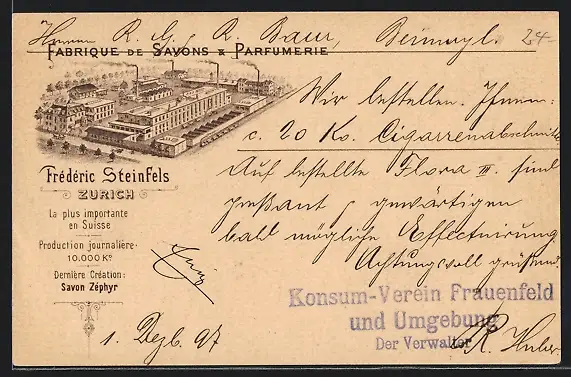 Herren R. G. & R. Baur, Beinwyl. 24-
FABRIQUE DE SAVONS & PARFUMERIE
Frédéric Steinfels
ZURICH
La plus importante
en Suisse
Production journalière:
10.000 Kº
Dernière Création:
Savon Zéphyr
Wir bestellen Ihnen:
c. 20 Ko. Cigarrenabschnitt
Auf bestellte Flora III. sind
pressant & gewärtigen
bald mögliche Effectuirung
Achtungsvoll grüssend
Konsum-Verein Frauenfeld
und Umgebung
Der Verwalter
R. Huber
1. Dezb. 97